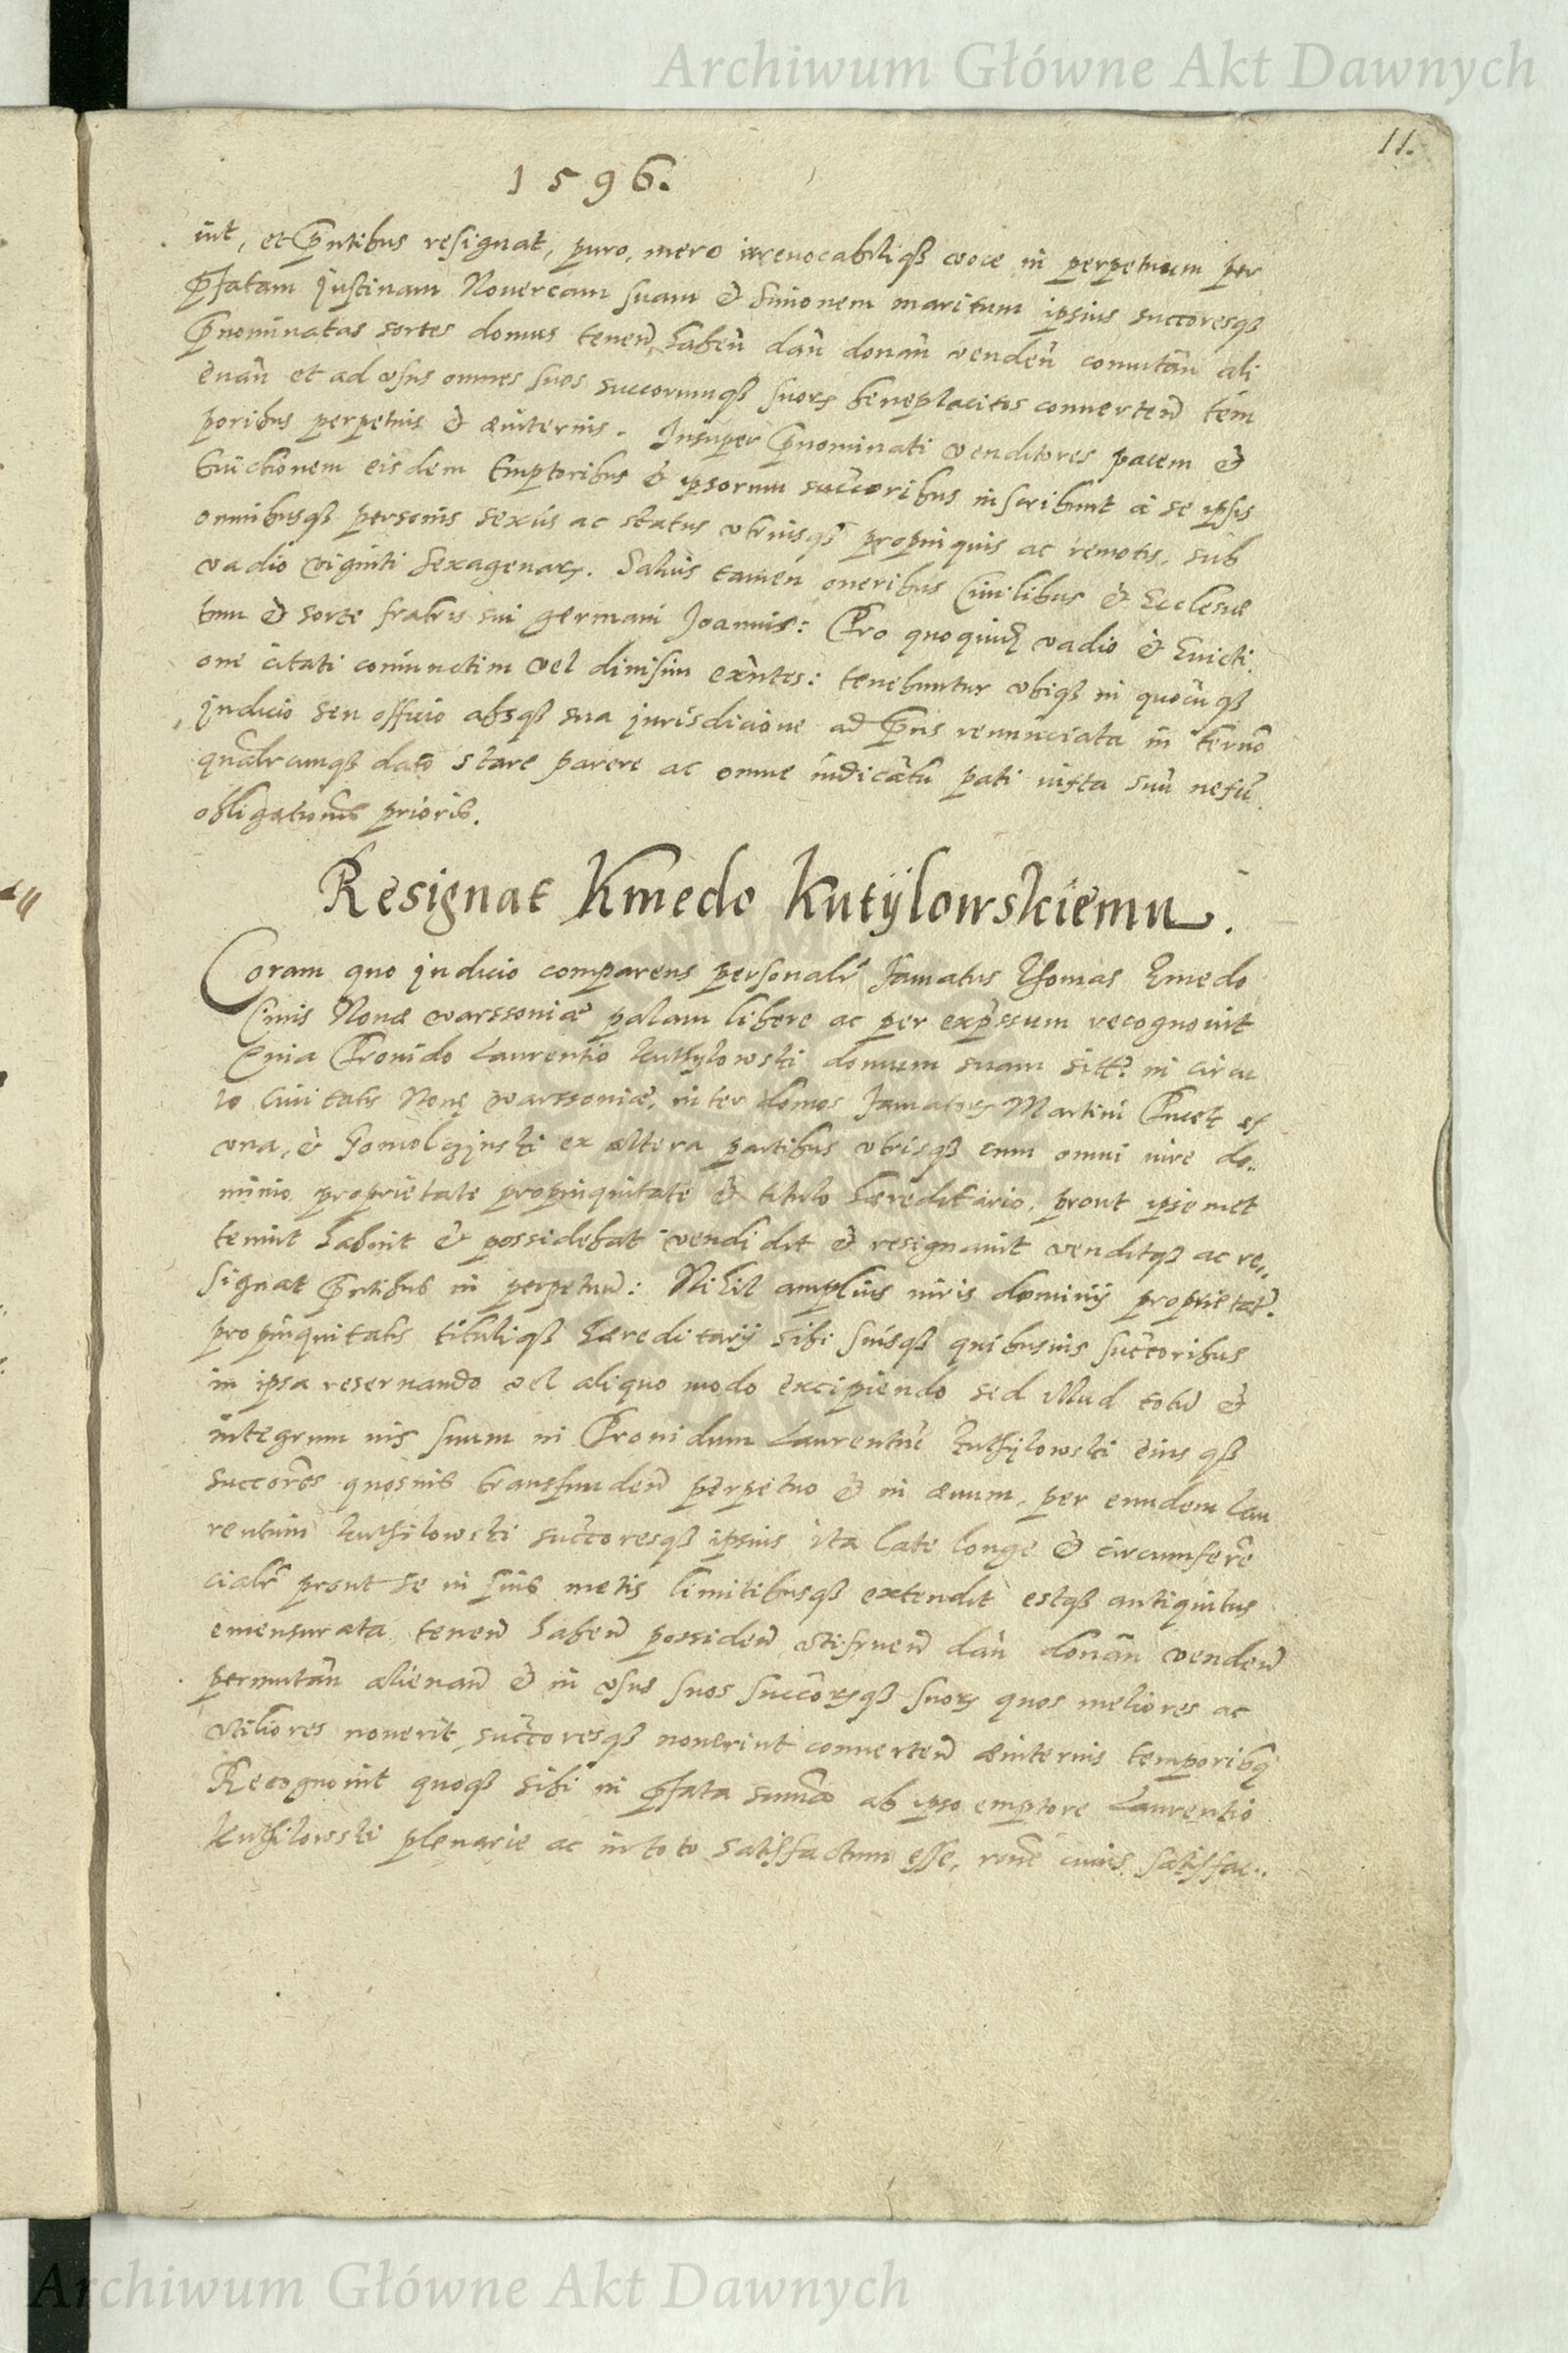 Archiwum Główne Akt Dawnych
11.
1596.
int, et pñtibus resignat, puro, mero irreuocabiliq3 voce in perpetuum per
pfatam Justinam Nouercam suam & Simonem maritum ipsius succoresq3
pnominatas sortes domus teneñ, habeñ dañ donañ vendeñ comutañ ali
enañ et ad vsus omnes suos succorumq3 suorx beneplacitos conuerteñ tem
poribus perpetuis & æuiternis. Insuper pnominati venditores pacem &
Euictionem eisdem Emptoribus & ipsorum succoribus inscribunt a se ipsis
omnibusq3 personis sexus ac status vtriusq3 propinquis ac remotis, sub
vadio viginti sexagenarx. Saluis tamen oneribus Ciuilibus & Ecclesiæ
tum & sorte fratris sui germani Joannis: Pro quoquid vadio & Euicti
one citati coniunctim vel diuisim exntes: tenebuntur vbiq3 in quocuq3
judicio seu officio absq3 sua jurisdicione ad pñs renunciata in termo
qualicumq3 dato stare parere ac omne iudicatu pati iuxta suu
obligationis prioris.
Resignat Kmedo Kutÿlowskiemu.
Coram quo judicio comparens personalr famatus Thomas Kmedo
Ciuis Nouæ warssouiæ palam libere ac per expressum recognouit
Quia Prouido Laurentio Kuthylowski domum suam sitt. in circu
lo Ciuitatis Nouę warssouiæ, inter domos famatorx Martini Pucek ex
vna, & Gomolczynski ex altera partibus vtrisq3 cum omni iure do..
minio proprietate propinquitate & titulo hæreditario, prout ipsemet
tenuit habuit & possidebat vendidit & resignauit venditq3 ac re..
signat pñtibus in perpetuũ: Nihil amplius iuris dominij proprietat.
propinquitatis tituliq3 hæreditarij sibi suisq3 quibusuis succoribus
in ipsa reseruando vel aliquo modo excipiendo sed illud totũ &
integrum ius suum in Prouidum Laurentiũ Kuthÿlowski eiusq3
succores quosuis transfundeñ perpetuo & in æuum, per eundem Lau
rentium Kuthilowski succoresq3 ipsius ita late longe & circumfere
cialr prout se in suis metis limitibusq3 extendit estq3 antiquitus
emensurata, teneñ habeñ possideñ vtifrueñ dañ donañ vendeñ
permutañ alienañ & in vsus suos succorxq3 suorx quos meliores ac
vtiliores nouerit, succoresq3 nouerint conuerteñ æuiternis temporibq
Recognouit quoq3 sibi in pfata summa ab ipso emptore Laurentio
Kuthilowski plenarie ac in toto satisfactum esse, rone cuius satisfac..
Archiwum Główne Akt Dawnych